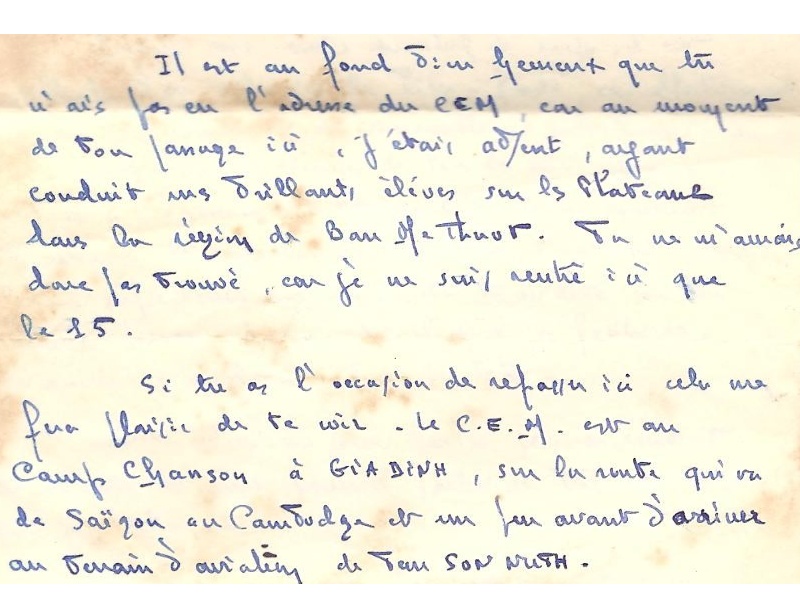 Il est au fond bien heureux que tu
n'ais pas eu l'adresse du CEM, car au moment
de ton passage ici, j'étais absent, ayant
conduit mes brillants élèves sur les Plateaux
dans la région de Ban Me Thuot. Tu ne m'aurais
donc pas trouvé, car je ne suis rentré ici que
le 15.
Si tu as l'occasion de repasser ici cela me
fera plaisir de te voir. Le C.E.M. est au
Camp Chanson à GIADINH, sur la route qui va
de Saïgon au Cambodge et un peu avant d'arriver
au terrain d'aviation de Tan SON NUTH.